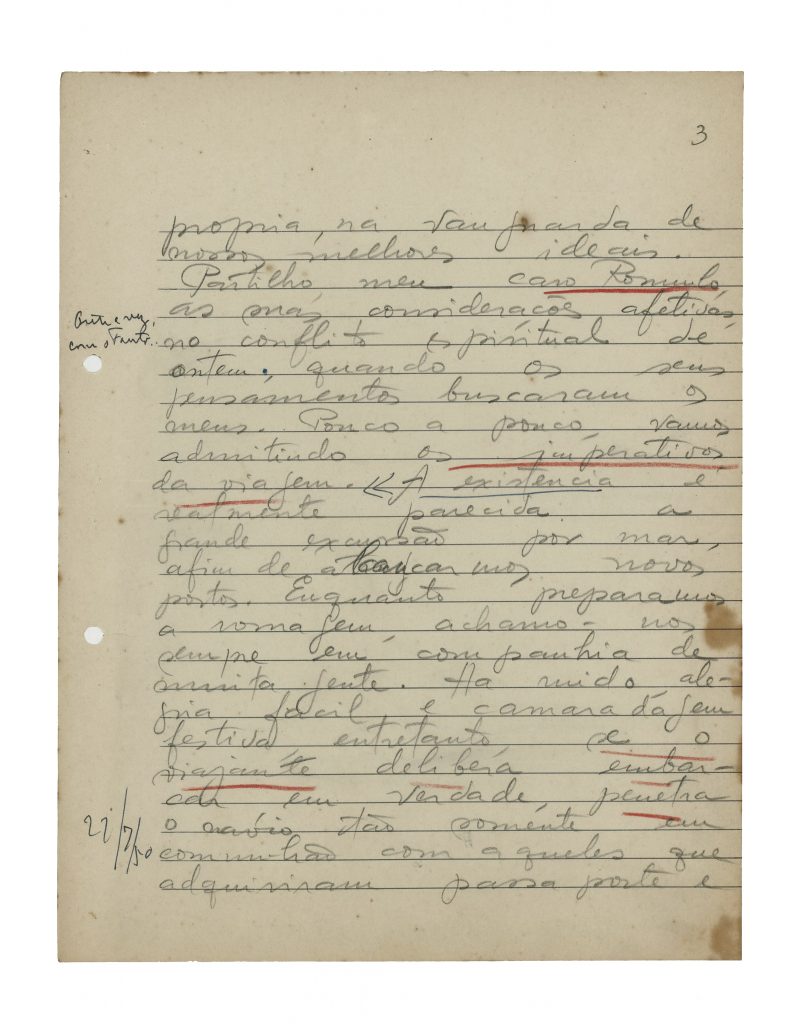 3
propria, na vanguarda de
nossos melhores ideais.
Partilho meu caro Romulo,
as suas considerações afetivas
no conflito espiritual de
ontem, quando os seus
pensamentos buscaram os
meus. Pouco a pouco, vamos
admitindo os imperativos
da viagem. A existencia é
realmente parecida a
grande excursão por mar,
afim de alcançarmos novos
portos. Enquanto preparamos
a romagem, achamo-nos
sempre em companhia de
muita gente. Ha ruido, ale-
gria facil e camaradagem
festiva entretanto, se o
viajante delibera embar-
car em verdade, penetra
o navio tão somente em
comunhão com aqueles que
adquiriram passaporte e
22/7/50